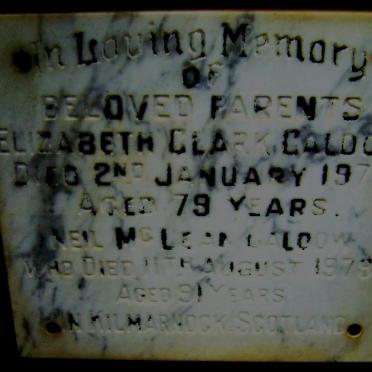 In Loving Memory
OF
BELOVED PARENTS
ELIZABETH CLARK
DIED 2ND JANUARY
AGED 79 YEARS.
NEIL McLEAN
WHO DIED 11TH AUGUST 1978
AGED 91 YEARS
IN KILMARNOCK SCOTLAND